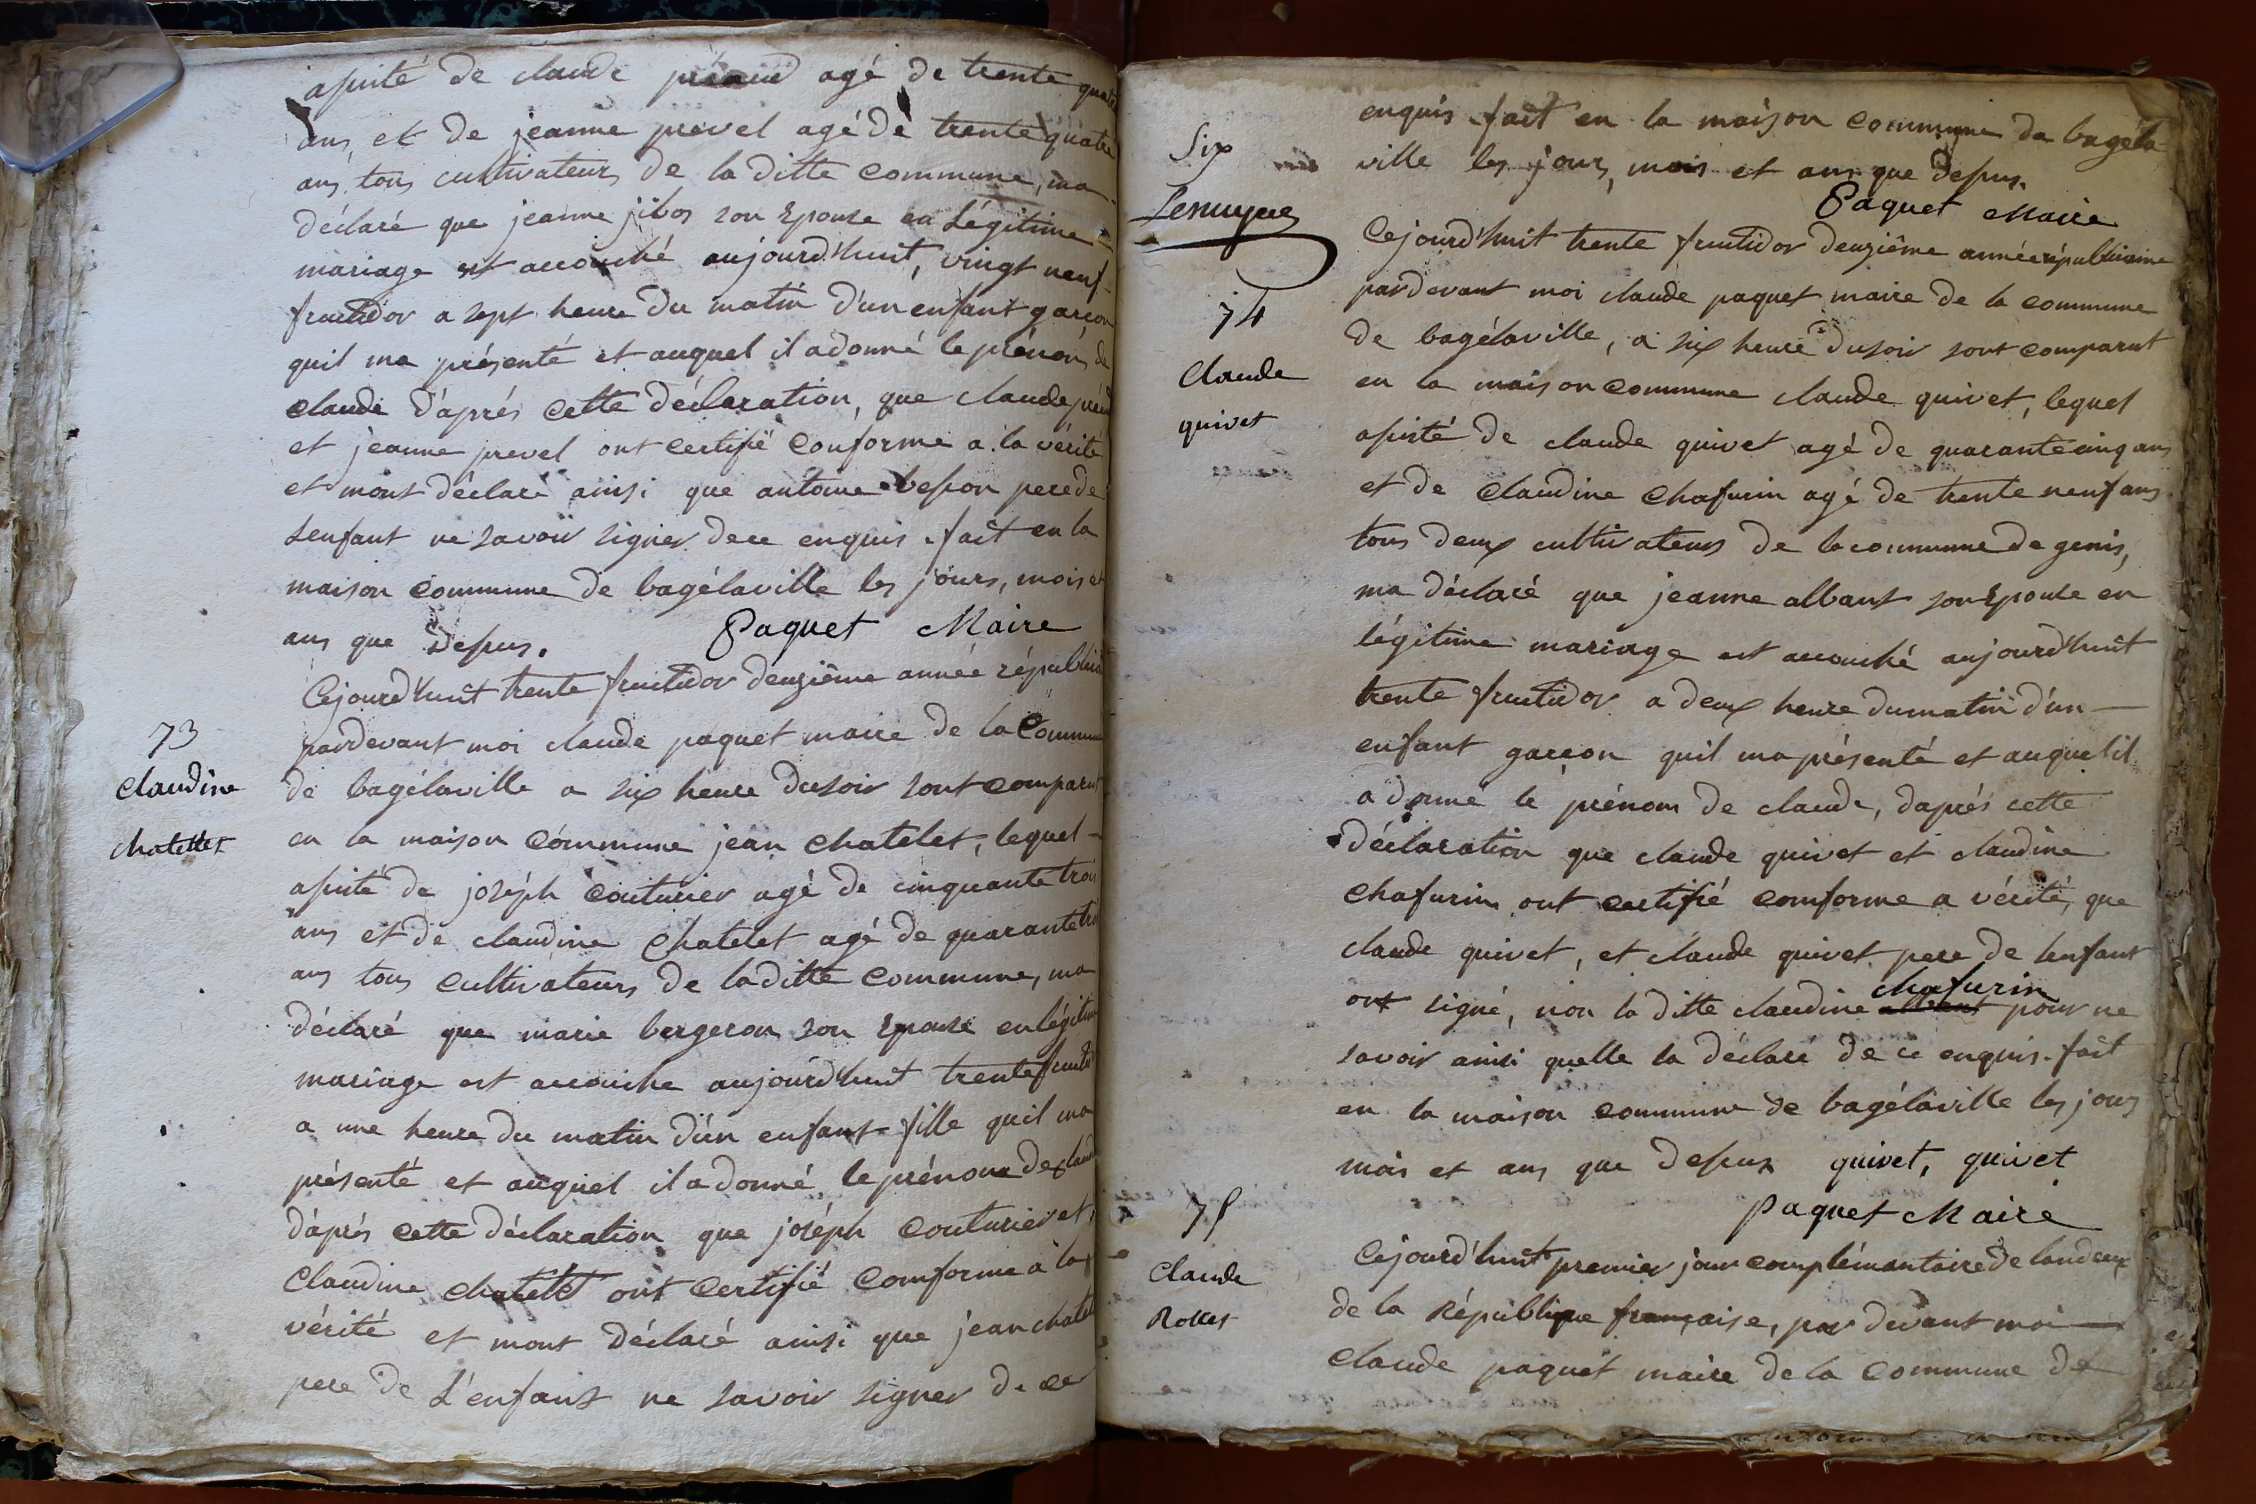 asisté de claude agé de trente quatre
ans, et de jeanne prevel agé de trente quatre
ans, tous cultivateurs de la ditte commune, ma
déclaré que jeanne jibos son Epouse en Légitime
mariage est accouché aujourd'huit, vingt neuf
fructidor a sept heure du matin d'un enfant garcon
quil ma présenté et auquel il a donné le prénom de
claude d'aprés cette déclaration, que claude
et jeanne prevel ont certifié conforme a la vérité
et m'ont déclaré ainsi que antoine besson pere de
Lenfant ne savoir signer de ce enquis. fait en la
maison commune de bagélaville les jours, mois et
ans que Desus. Paquet Maire
73
Claudine
chatelet
Cejourd'huit trente fructidor deuziême année républicaine
pardevant moi claude paquet maire de la Commune
de bagélaville a six heure du soir sont comparut
en la maison commune jean chatelet, lequel
asisté de joséph couturier agé de cinquante trois
ans et de claudine chatelet agé de quarante trois
ans tous cultivateurs de la ditte commune, ma
déclaré que marie bergeron son Epouse en légitime
mariage est accouche aujourd'huit trente fructidor
a une heure du matin d'un enfant fille quil ma
présenté et auquel il a donné le prénom de claudine
d'aprés cette déclaration que joséph couturier et,
Claudine chatelet ont certifié comforme a la
vérité et mont déclaré ainsi que jean chatelet
pere de L'enfant ne savoir signer de ce
Six
enquis fait en la maison commune de bagéla
ville les jours, mois et ans que desus.
Paquet Maire
74
Claude
quivet
Cejourd'huit trente fructidor deuziême année républicaine
pardevant moi claude paquet maire de la commune
de bagélaville, a six heure du soir sont comparut
en la maison commune claude quivet, lequel
asisté de claude quivet agé de quarante cinq ans
et de claudine chafurin agé de trente neuf ans
tous deux cultivateurs de la commune de genis,
ma déclaré que jeanne albant son Epouse en
légitime mariage est accouché aujourd'huit
trente fructidor a deux heure du matin d'un
enfant garcon quil ma présenté et auquel il
a donné le prénom de claude, daprés cette
déclaration que claude quivet et claudine
chafurin ont certifié comforme a vérité, que
claude quivet, et claude quivet pere de lenfant
ont signé, non la ditte claudine chafurin pour ne
savoir ainsi quelle la déclaré de ce enquis. fait
en la maison commune de bagélaville les jours
mois et ans que desus quivet, quivet
Paquet Maire
75
Claude
Rollet
Cejourd'huit premier jour complémantaire de lan deux
de la République française, par devant moi
claude paquet maire de la commune de